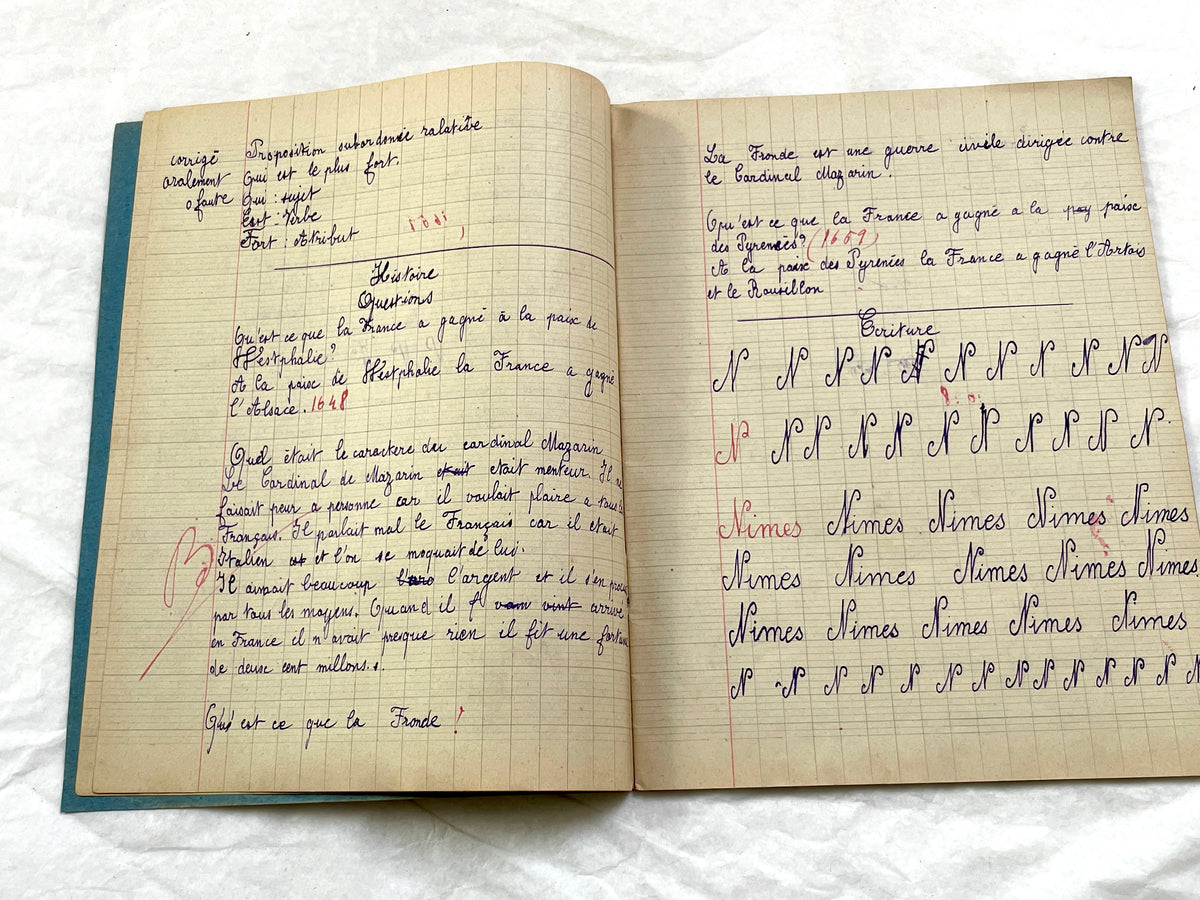 corrigé
oralement
0 faute
Proposition subordonée ralative
Qui est le plus fort.
Qui : sujet
Est : Verbe
Fort : Atribut
Histoire
Questions
Qu'est ce que la France a gagné à la paix de
Westphalie?
A la paix de Westphalie la France a gagné
l'Alsace. 1648
Quel était le caractere du cardinal Mazarin
Le Cardinal de Mazarin etait etait menteur. Il ne
faisait peur a personne car il voulait plaire a tous
Français. Il parlait mal le Français car il etait
Italien et l'on se moquait de lui.
Il aimait beaucoup l'argent et il s'en
par tous les moyens. Quand il vint arrive
en France il n'avait presque rien il fit une fortune
de deuse cent millons.
Qu'est ce que la Fronde ?
B
La Fronde est une guerre civile dirigée contre
le Cardinal Mazarin.
Qu'est ce que la France a gagné a la pay paise
des Pyrenées? (1659)
A la paix des Pyrenies la France a gagné l'Artois
et le Rousillon
Ecriture
N N N N N N N N N N N
N N N N N N N N N N N
Nimes Nimes Nimes Nimes Nimes
Nimes Nimes Nimes Nimes Nimes
Nimes Nimes Nimes Nimes Nimes
N N N N N N N N N N N N N N